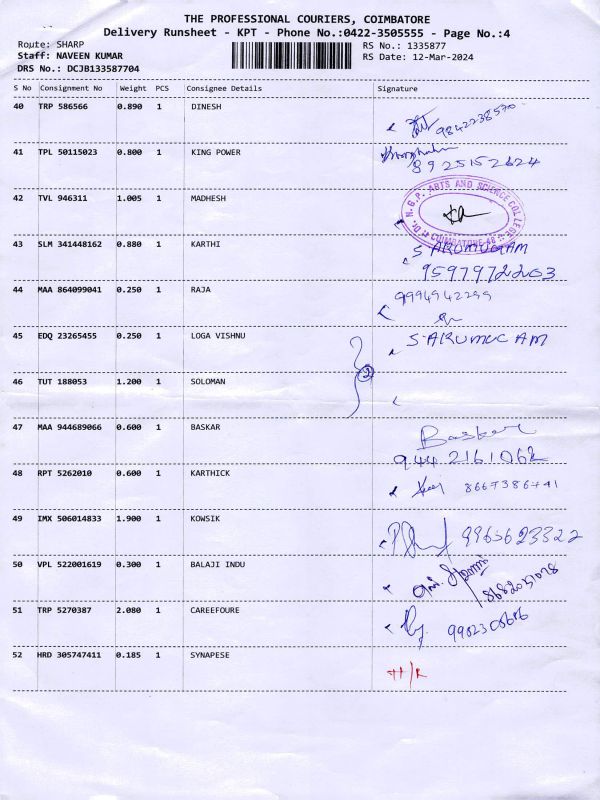 THE PROFESSIONAL COURIERS, COIMBATORE
Delivery Runsheet - KPT - Phone No.:0422-3505555 - Page No.:4
Route: SHARP
Staff: NAVEEN KUMAR
DRS No.: DCJB133587704
RS No.: 1335877
RS Date: 12-Mar-2024
S No Consignment No Weight PCS Consignee Details Signature
40 TRP 586566 0.890 1 DINESH
9842238570
41 TPL 50115023 0.800 1 KING POWER
8925152624
42 TVL 946311 1.005 1 MADHESH
Dr. N.G.P. ARTS AND SCIENCE COLLEGE
COIMBATORE-48
43 SLM 341448162 0.880 1 KARTHI
S ARUMUGAM
9597972203
44 MAA 864099041 0.250 1 RAJA
9994942299
45 EDQ 23265455 0.250 1 LOGA VISHNU
S ARUMUGAM
2
46 TUT 188053 1.200 1 SOLOMAN
47 MAA 944689066 0.600 1 BASKAR
Baskar
9442161062
48 RPT 5262010 0.600 1 KARTHICK
8667386741
49 IMX 506014833 1.900 1 KOWSIK
9965623322
50 VPL 522001619 0.300 1 BALAJI INDU
8682051078
51 TRP 5270387 2.080 1 CAREEFOURE
52 HRD 305747411 0.185 1 SYNAPESE
H/R